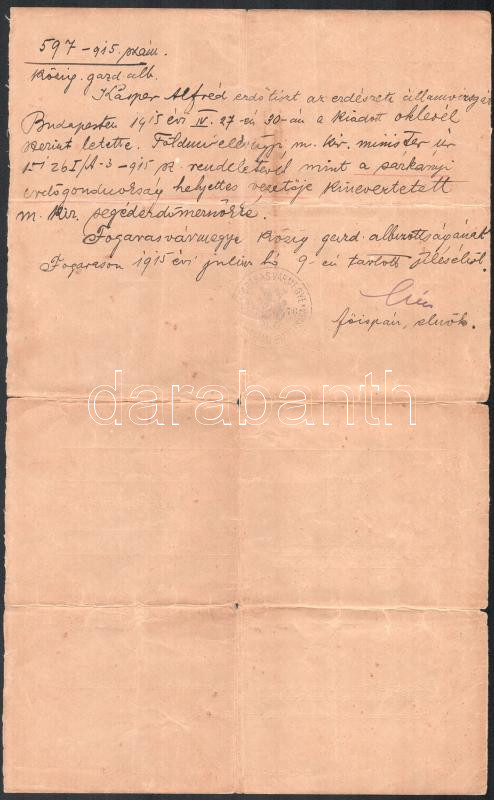 597-915. szám.
közig. gazd. alb.
Kásper Alfréd erdőtiszt az erdészeti államvizsgát
Budapesten 1915 évi IV. 27-én 30-án a kiadott oklevél
szerint letette. Földmívelésügyi m. kir. minister úr
I-3-915 sz. rendeletével mint a sarkanyi
erdőgondnokság helyettes vezetője kineveztetett
m. kir. segéderdőmérnökké.
Fogarasvármegye közig. gazd. albizottságának
Fogarason 1915 évi julius hó 9-én tartott üléséből.
főispán, elnök.
darabanth